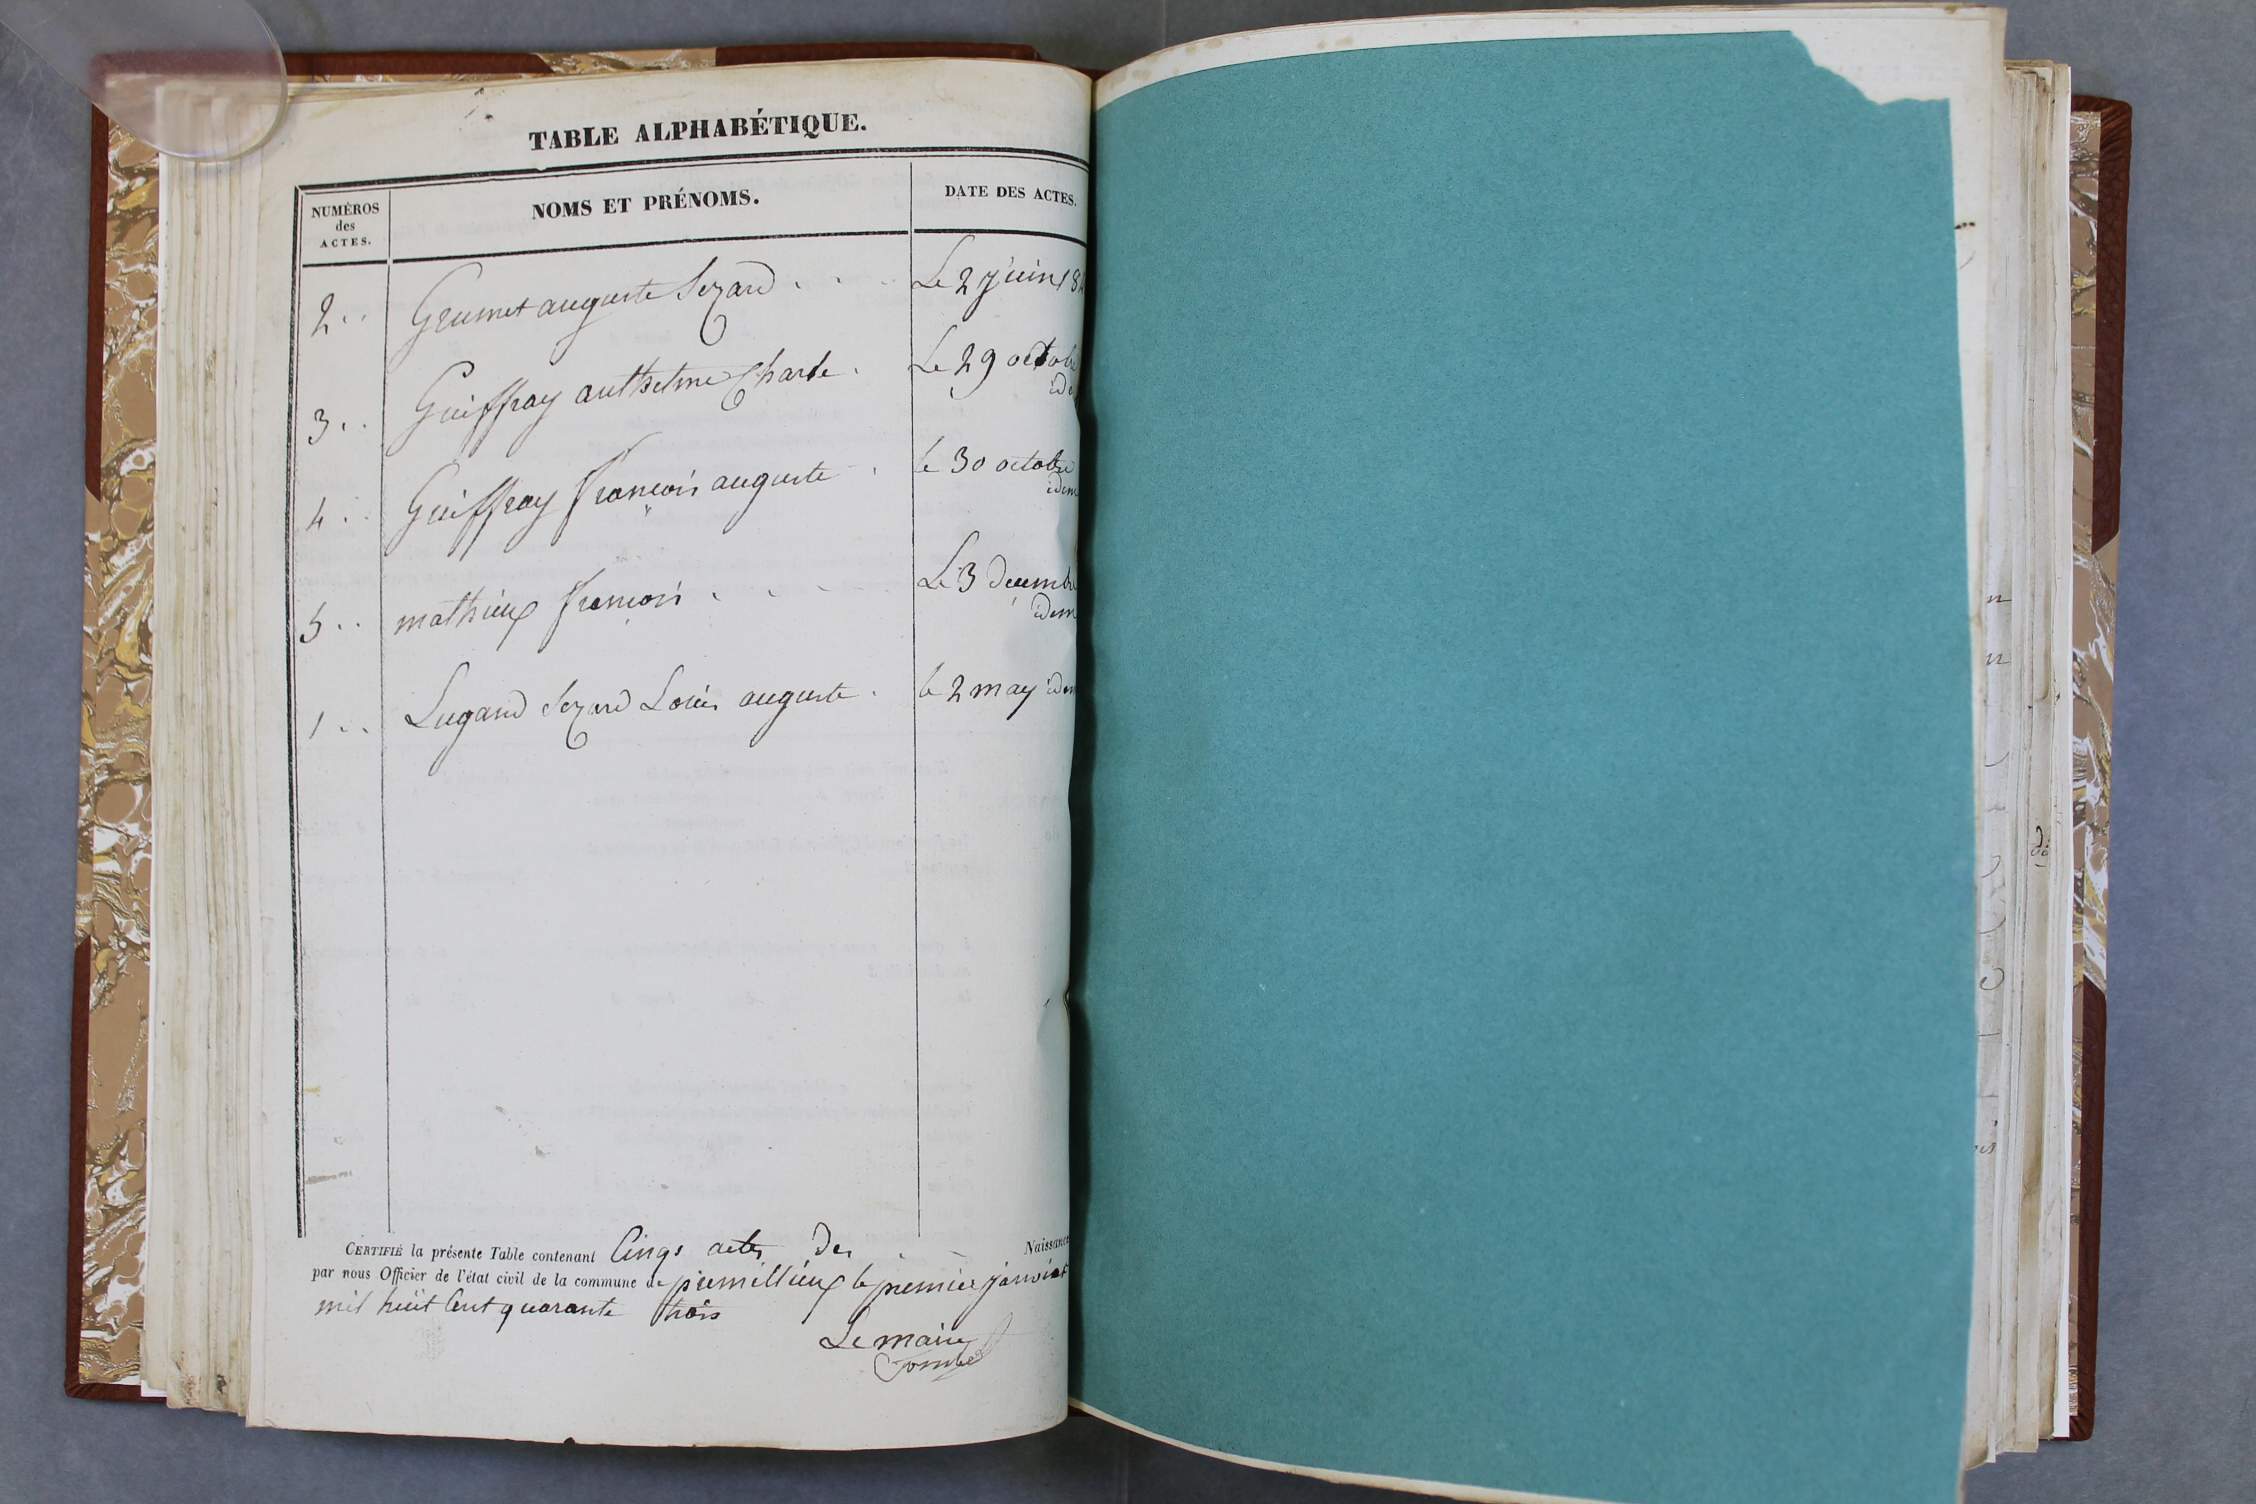 TABLE ALPHABÉTIQUE.
NUMÉROS
des
ACTES.
NOMS ET PRÉNOMS.
DATE DES ACTES.
2 Grumet auguste Sezard Le 2 juin 18
3 Guiffray anthelme Charle Le 29 octob
ide
4 Guiffray françois auguste le 30 octobre
idem
5 mathieux françois Le 3 decembre
idem
1 Lugand Sezard Louis auguste le 2 may idem
CERTIFIÉ la présente Table contenant Cinqs actes De Naissance
par nous Officier de l'état civil de la commune de premillieux le premier janvier
mil huit Cent quarante trois
Le maire